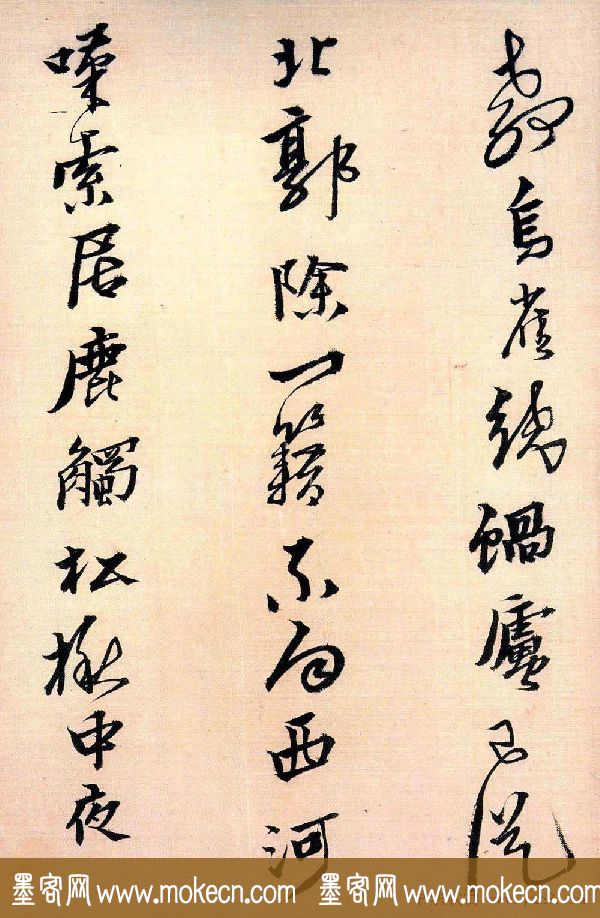 烏雀繞蝸廬已從
北郭除一籍不向西河
嘆索居鹿觸松楸中夜
墨客网 www.mokecn.com 墨客网 www.mokecn.com